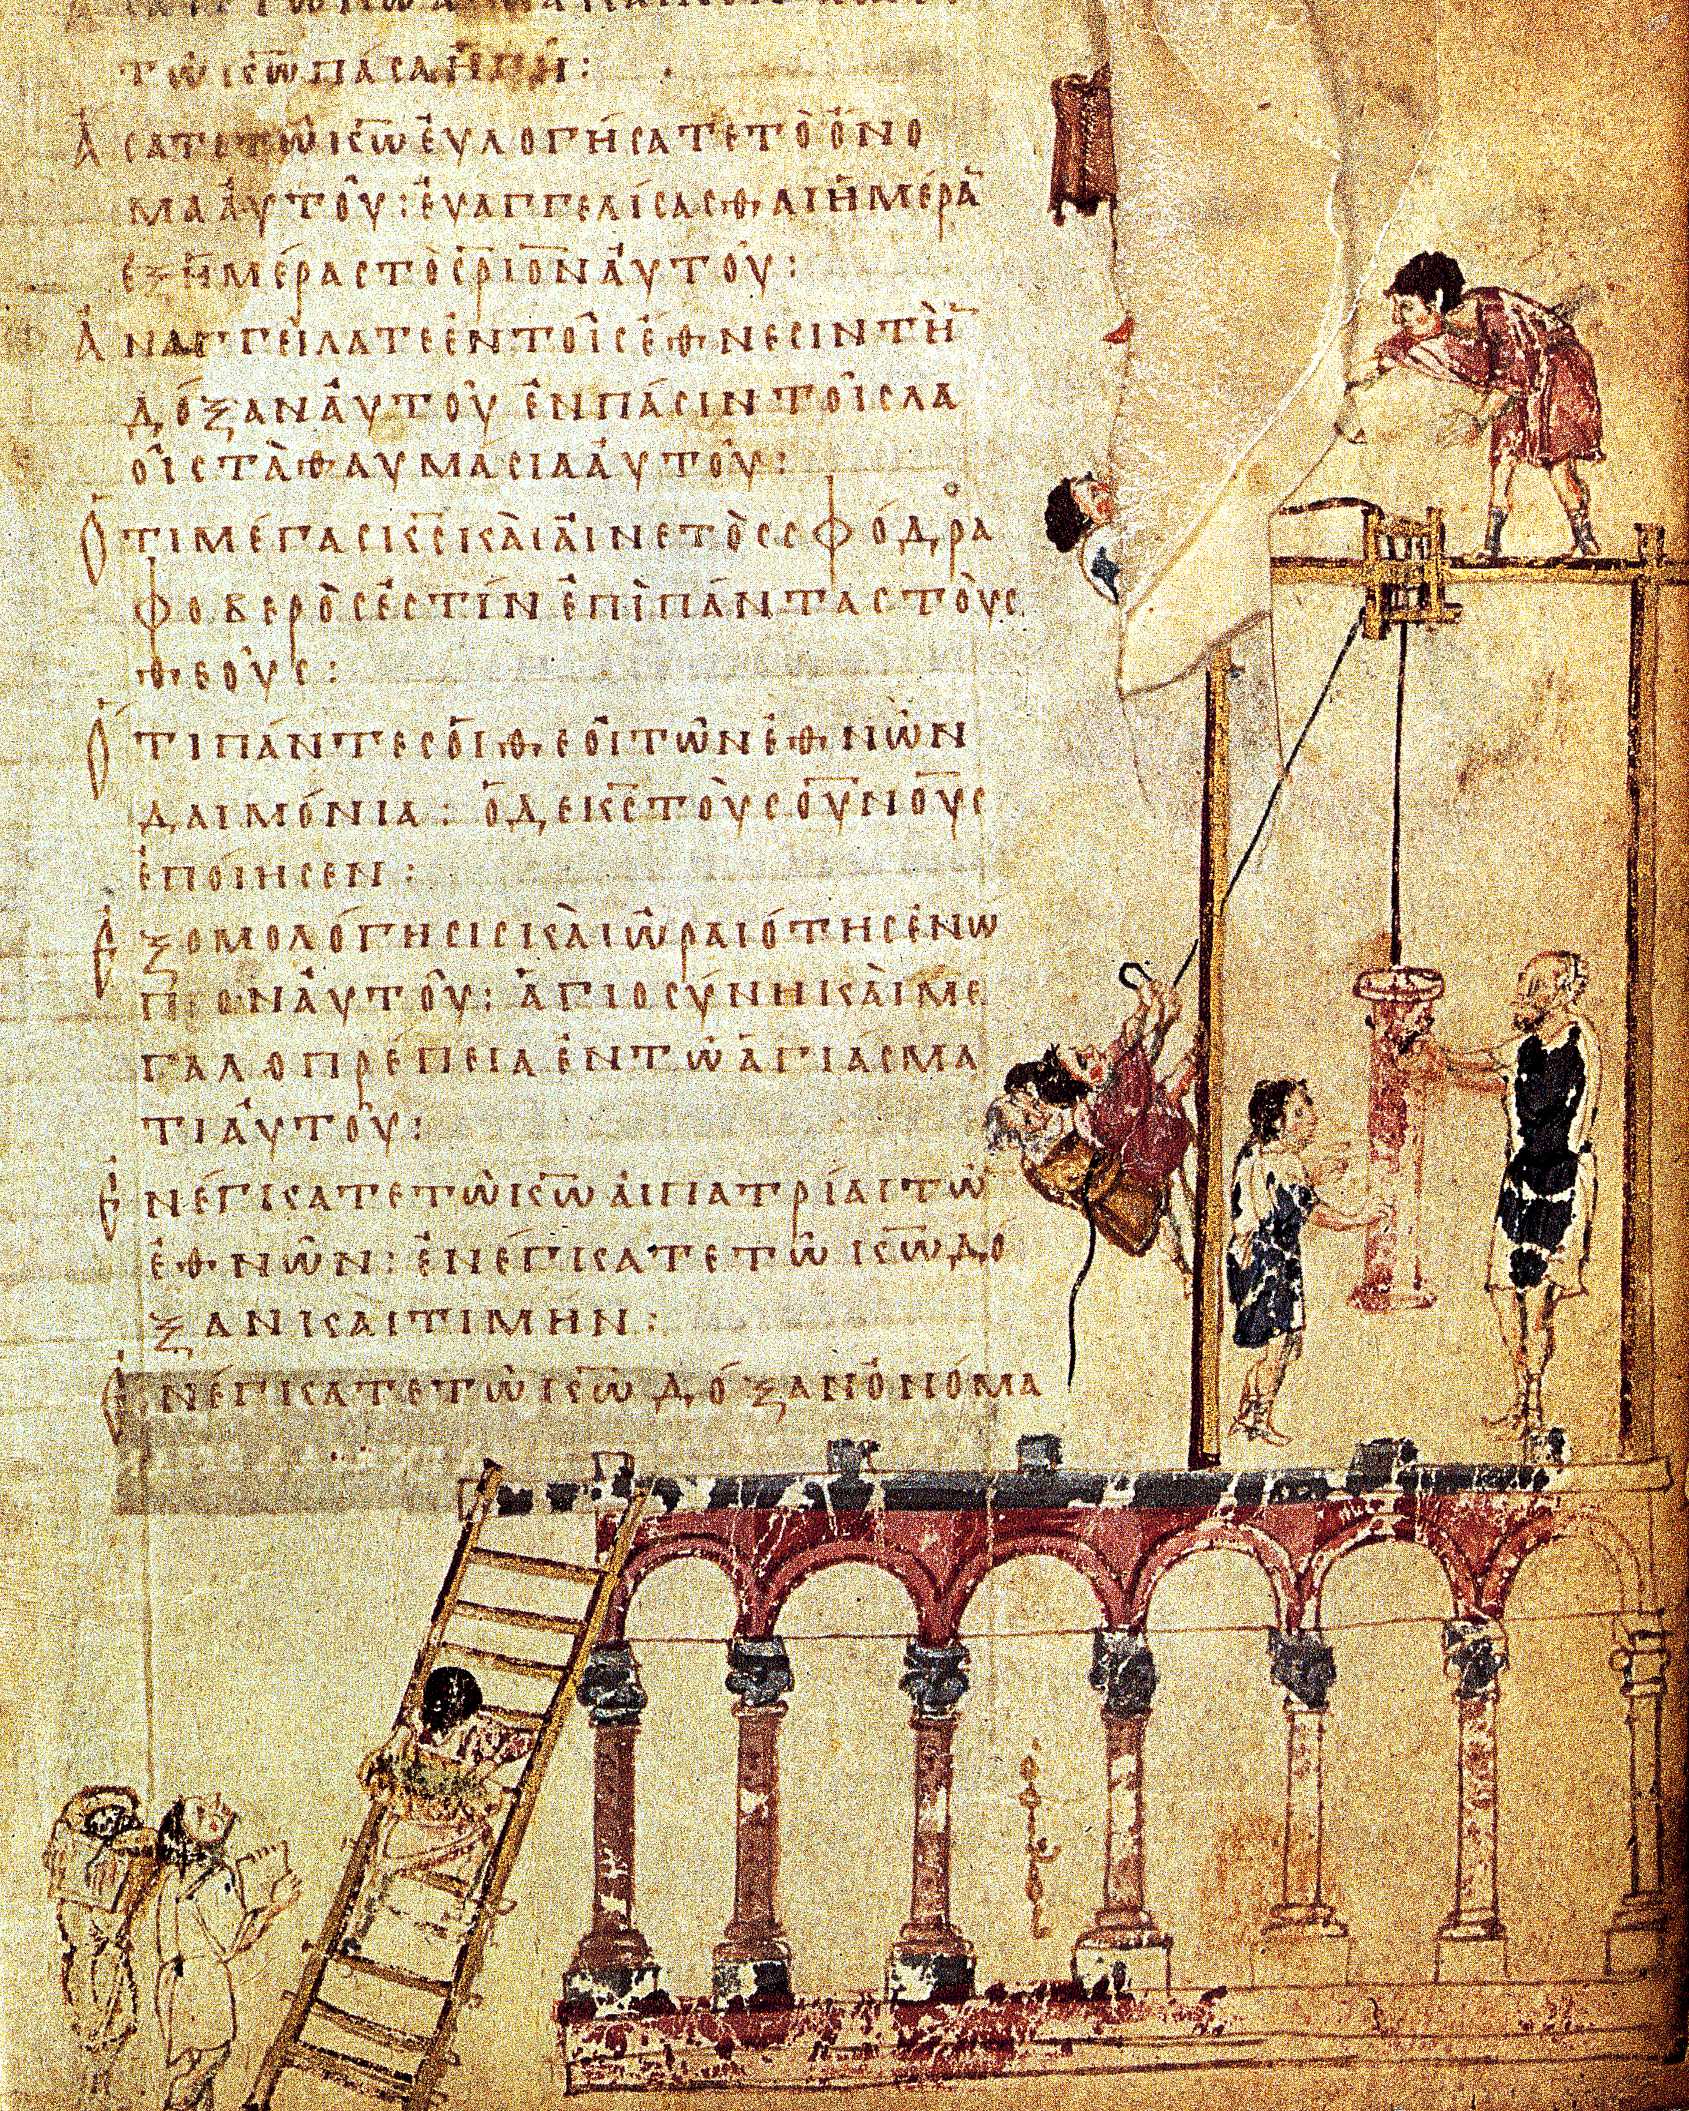 τῶ κ̅ω̅ πᾶσα ἡ γῆ:
ἄσατε τῶ κ̅ω̅ ἐυλογήσατε τὸ ὄνο
μα ἀυτοῦ: ἐυαγγελίσασθαι ἡμέρᾱ
ἐξ ἡμέρας τὸ σ̅ρ̅ιο̅ν ἀυτοῦ:
ἀναγγείλατε ἐν τοῖς ἔθνεσιν τὴ̅
δόξαν ἀυτοῦ ἐν πᾶσιν τοῖς λα
οῖς τὰ θαυμάσια ἀυτοῦ:
ὅτι μέγας κ̅ς̅ κὰι ἀινετὸς σφόδρα
φοβερὸς ἐστίν ἐπὶ πάντας τοὺς
θεούς:
ὅτι πάντες ὁι θεοὶ τῶν ἐθνῶν
δαιμόνια: ὁ δε κ̅ς̅ τοὺς ο̅υ̅νο̅υ̅ς
ἐποίησεν:
ἐξομολόγησις κὰι ὡραιότης ἐνώ
πιον ἀυτοῦ: ἁγιοσύνη κὰι με
γαλοπρέπεια ἐν τῶ ἁγιάσμα
τι ἀυτοῦ:
ἐνέγκατε τῶ κ̅ω̅ ἁι πατρίαι τῶ̅
ἐθνῶν: ἐνέγκατε τῶ κ̅ω̅ δό
ξαν και τιμήν:
ἐνέγκατε τῶ κ̅ω̅ δόξαν ὀνόμα